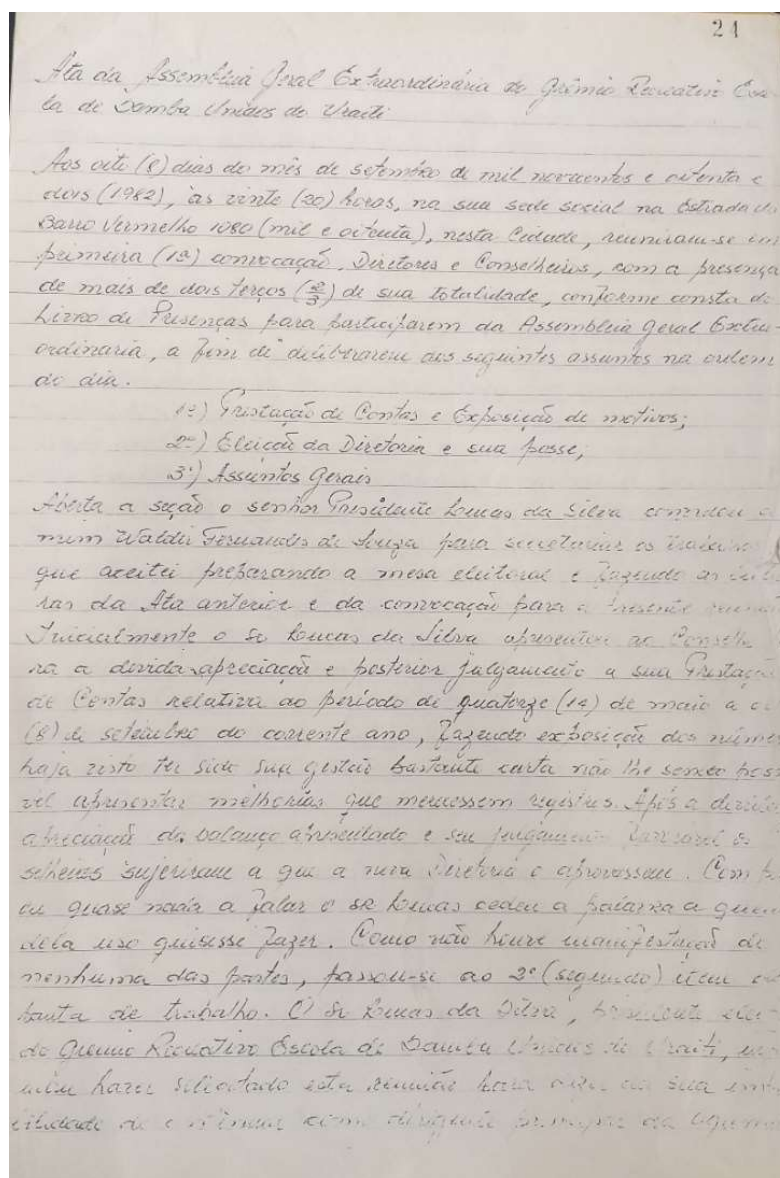 21
Ata da Assembléia Geral Extraordinária do Grêmio Recreativo Esco-
la de Samba Unidos do Uraiti
Aos oito (8) dias do mês de setembro de mil novecentos e oitenta e
dois (1982), às vinte (20) horas, na sua sede social na Estrada do
Barro Vermelho 1080 (mil e oitenta), nesta Cidade, reuniram-se em
primeira (1ª) convocação, Diretores e Conselheiros, com a presença
de mais de dois terços (2/3) de sua totalidade, conforme consta do
Livro de Presenças para participarem da Assembléia Geral Extra-
ordinaria, a fim de deliberarem dos seguintes assuntos na ordem
do dia.
1º) Prestação de Contas e Exposição de motivos;
2º) Eleição da Diretoria e sua posse;
3º) Assuntos Gerais
Aberta a seção o senhor Presidente Lucas da Silva convidou a
mim Waldir Fernandes de Souza para secretariar os trabalhos
que aceitei preparando a mesa eleitoral e fazendo as leitu
ras da Ata anterior e da convocação para a presente reunião
Inicialmente o Sr Lucas da Silva apresentou ao Conselh
ra a devida apreciação e posterior julgamento a sua Prestação
de Contas relativa ao período de quatorze (14) de maio a oi
(8) de setembro do corrente ano, fazendo exposição dos números
haja visto ter sido sua gestão bastante curta não lhe sendo poss
vel apresentar melhorias que merecessem registros. Após a devida
apreciação do balanço apresentado e seu julgamento favorável os
selheiros sujeriram a que a nova Diretoria o aprovassem. Com p
ou quase nada a falar o sr Lucas cedeu a palavra a quem
dela uso quisesse fazer. Como não houve manifestação de
nenhuma das partes, passou-se ao 2º (segundo) item da
pauta de trabalho. O Sr Lucas da Silva, presidente elei
do Gremio Recreativo Escola de Samba Unidos do Uraiti,
haver solicitado esta reunião para da sua
de continuar como dirigente principal da